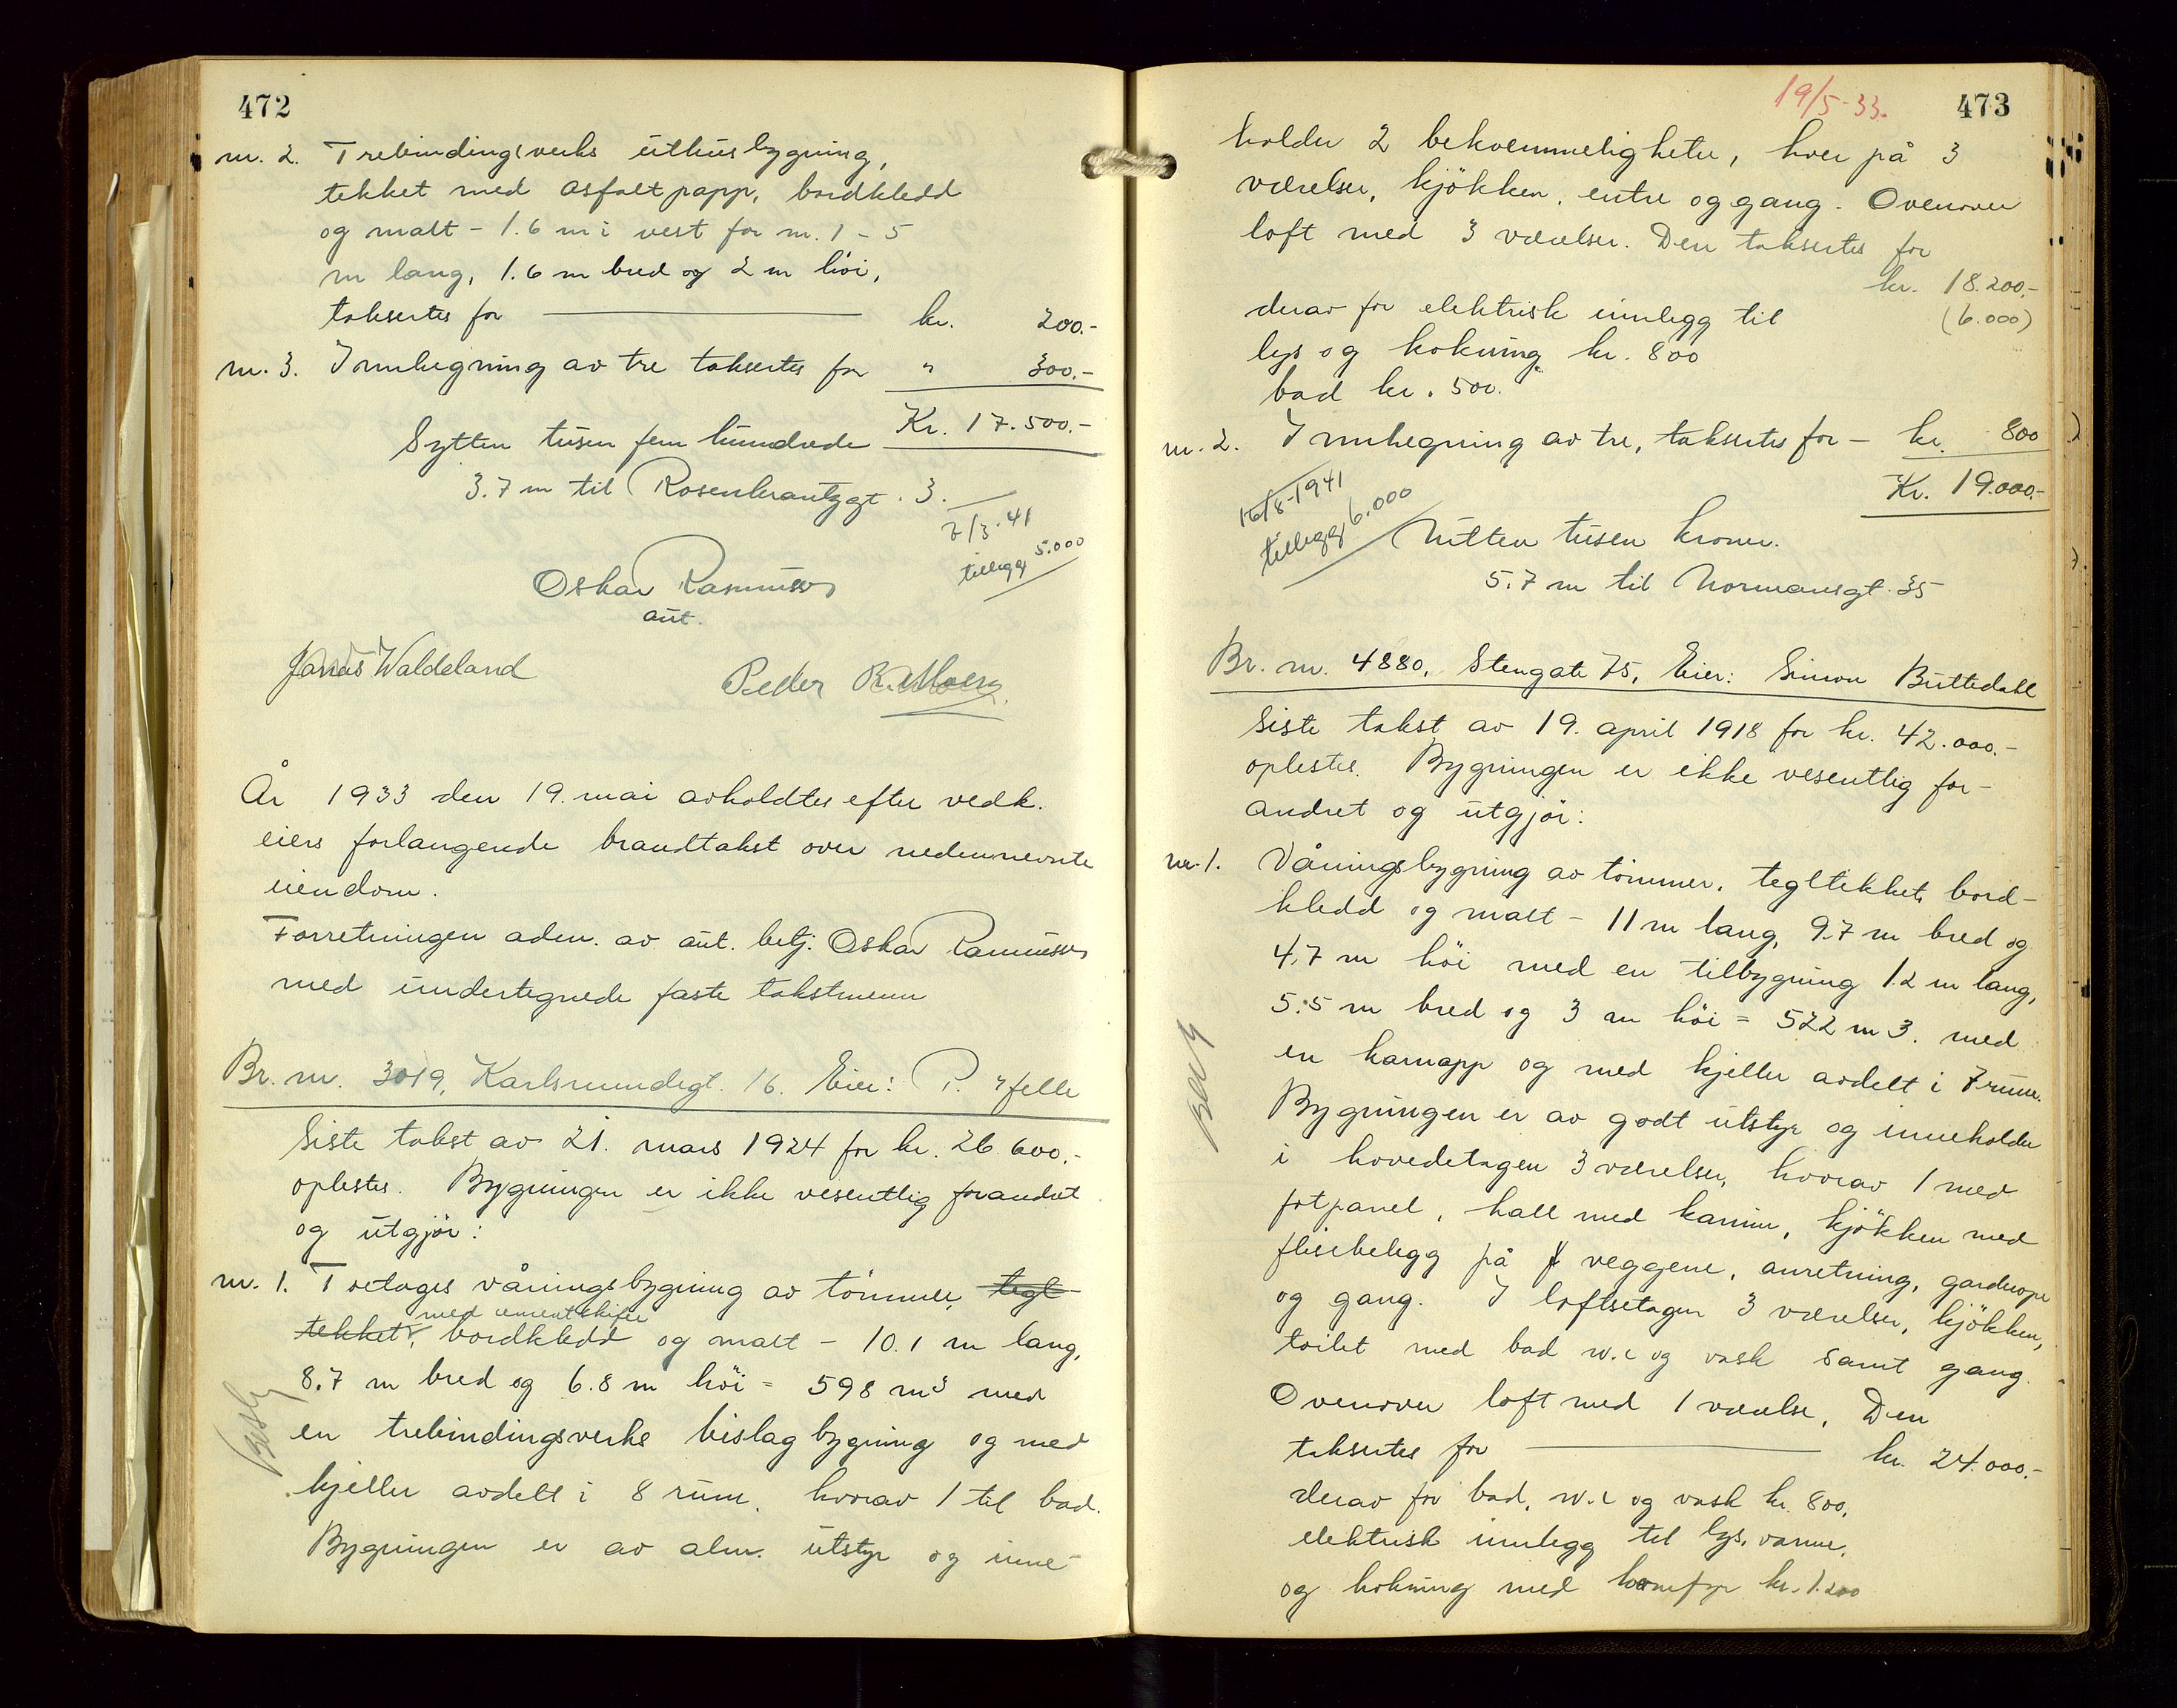 472
nr. 2. Trebindingsverks uthusbygning,
tekket med asfaltpapp, bordkledd
og malt - 1.6 m i vest for nr. 1 - 5
m lang, 1.6 m bred og 2 m höi,
taksertes for kr. 200.-
nr. 3. Innhegning av tre taksertes for " 300.-
Kr. 17.500.-
Sytten tusen fem hundrede
3.7 m til Rosenkrantzgt. 3.
7/3.41
tillegg 5.000
Oskar Rasmussen
aut.
Jonas Waldeland
Peder
År 1933 den 19. mai avholdtes efter vedk.
eiers forlangende brandtakst over nedennevnte
eiendom.
Forretningen adm. av aut. betj. Oskar Rasmussen
med undertegnede faste takstmenn
Br. nr. 3019, Karlsmindegt. 16. Eier: P.
Siste takst av 21. mars 1924 for kr. 26.600.-
oplestes. Bygningen er ikke vesentlig forandret
og utgjör:
nr. 1. Toetages våningsbygning av tömmer, tegl-
med cementskifer
tekket, bordkledd og malt - 10.1 m lang,
8.7 m bred og 6.8 m höi = 598 m3 med
en trebindingsverks bislagbygning og med
kjeller avdelt i 8 rum, hvorav 1 til bad.
Bygningen er av alm. utstyr og inne-
19/5-33.
473
holder 2 bekvemmeligheter, hver på 3
værelser, kjökken, entre og gang. Ovenover
loft med 3 værelser. Den taksertes for
kr. 18.200.-
derav for elektrisk innlegg til (6.000)
lys og kokning kr. 800
bad kr. 500.
nr. 2. Innhegning av tre, taksertes for - kr. 800
Kr. 19.000.-
16/8-1941
tillegg 6.000
Nitten tusen kroner.
5.7 m til Normansgt. 35
Br. nr. 4880, Stengate 75, Eier: Simon Buttedahl
Siste takst av 19. april 1918 for kr. 42.000.-
oplestes. Bygningen er ikke vesentlig for-
andret og utgjör:
nr. 1. Våningsbygning av tömmer, tegltekket, bord-
kledd og malt - 11 m lang, 9.7 m bred og
4.7 m höi med en tilbygning 1.2 m lang,
5.5 m bred og 3 m höi = 522 m3. med
en karnapp og med kjeller avdelt i 7 rum.
Bygningen er av godt utstyr og inneholder
i hovedetagen 3 værelser, hvorav 1 med
fotpanel, hall med kamin, kjökken med
flisebelegg på veggene, anretning, garderope
og gang. I loftsetagen 3 værelser, kjökken,
toilet med bad w.c og vask samt gang.
Ovenover loft med 1 værelse. Den
taksertes for kr. 24.000.-
derav for bad, w.c og vask kr. 800,
elektrisk innlegg til lys, varme,
og kokning med komfyr kr. 1.200